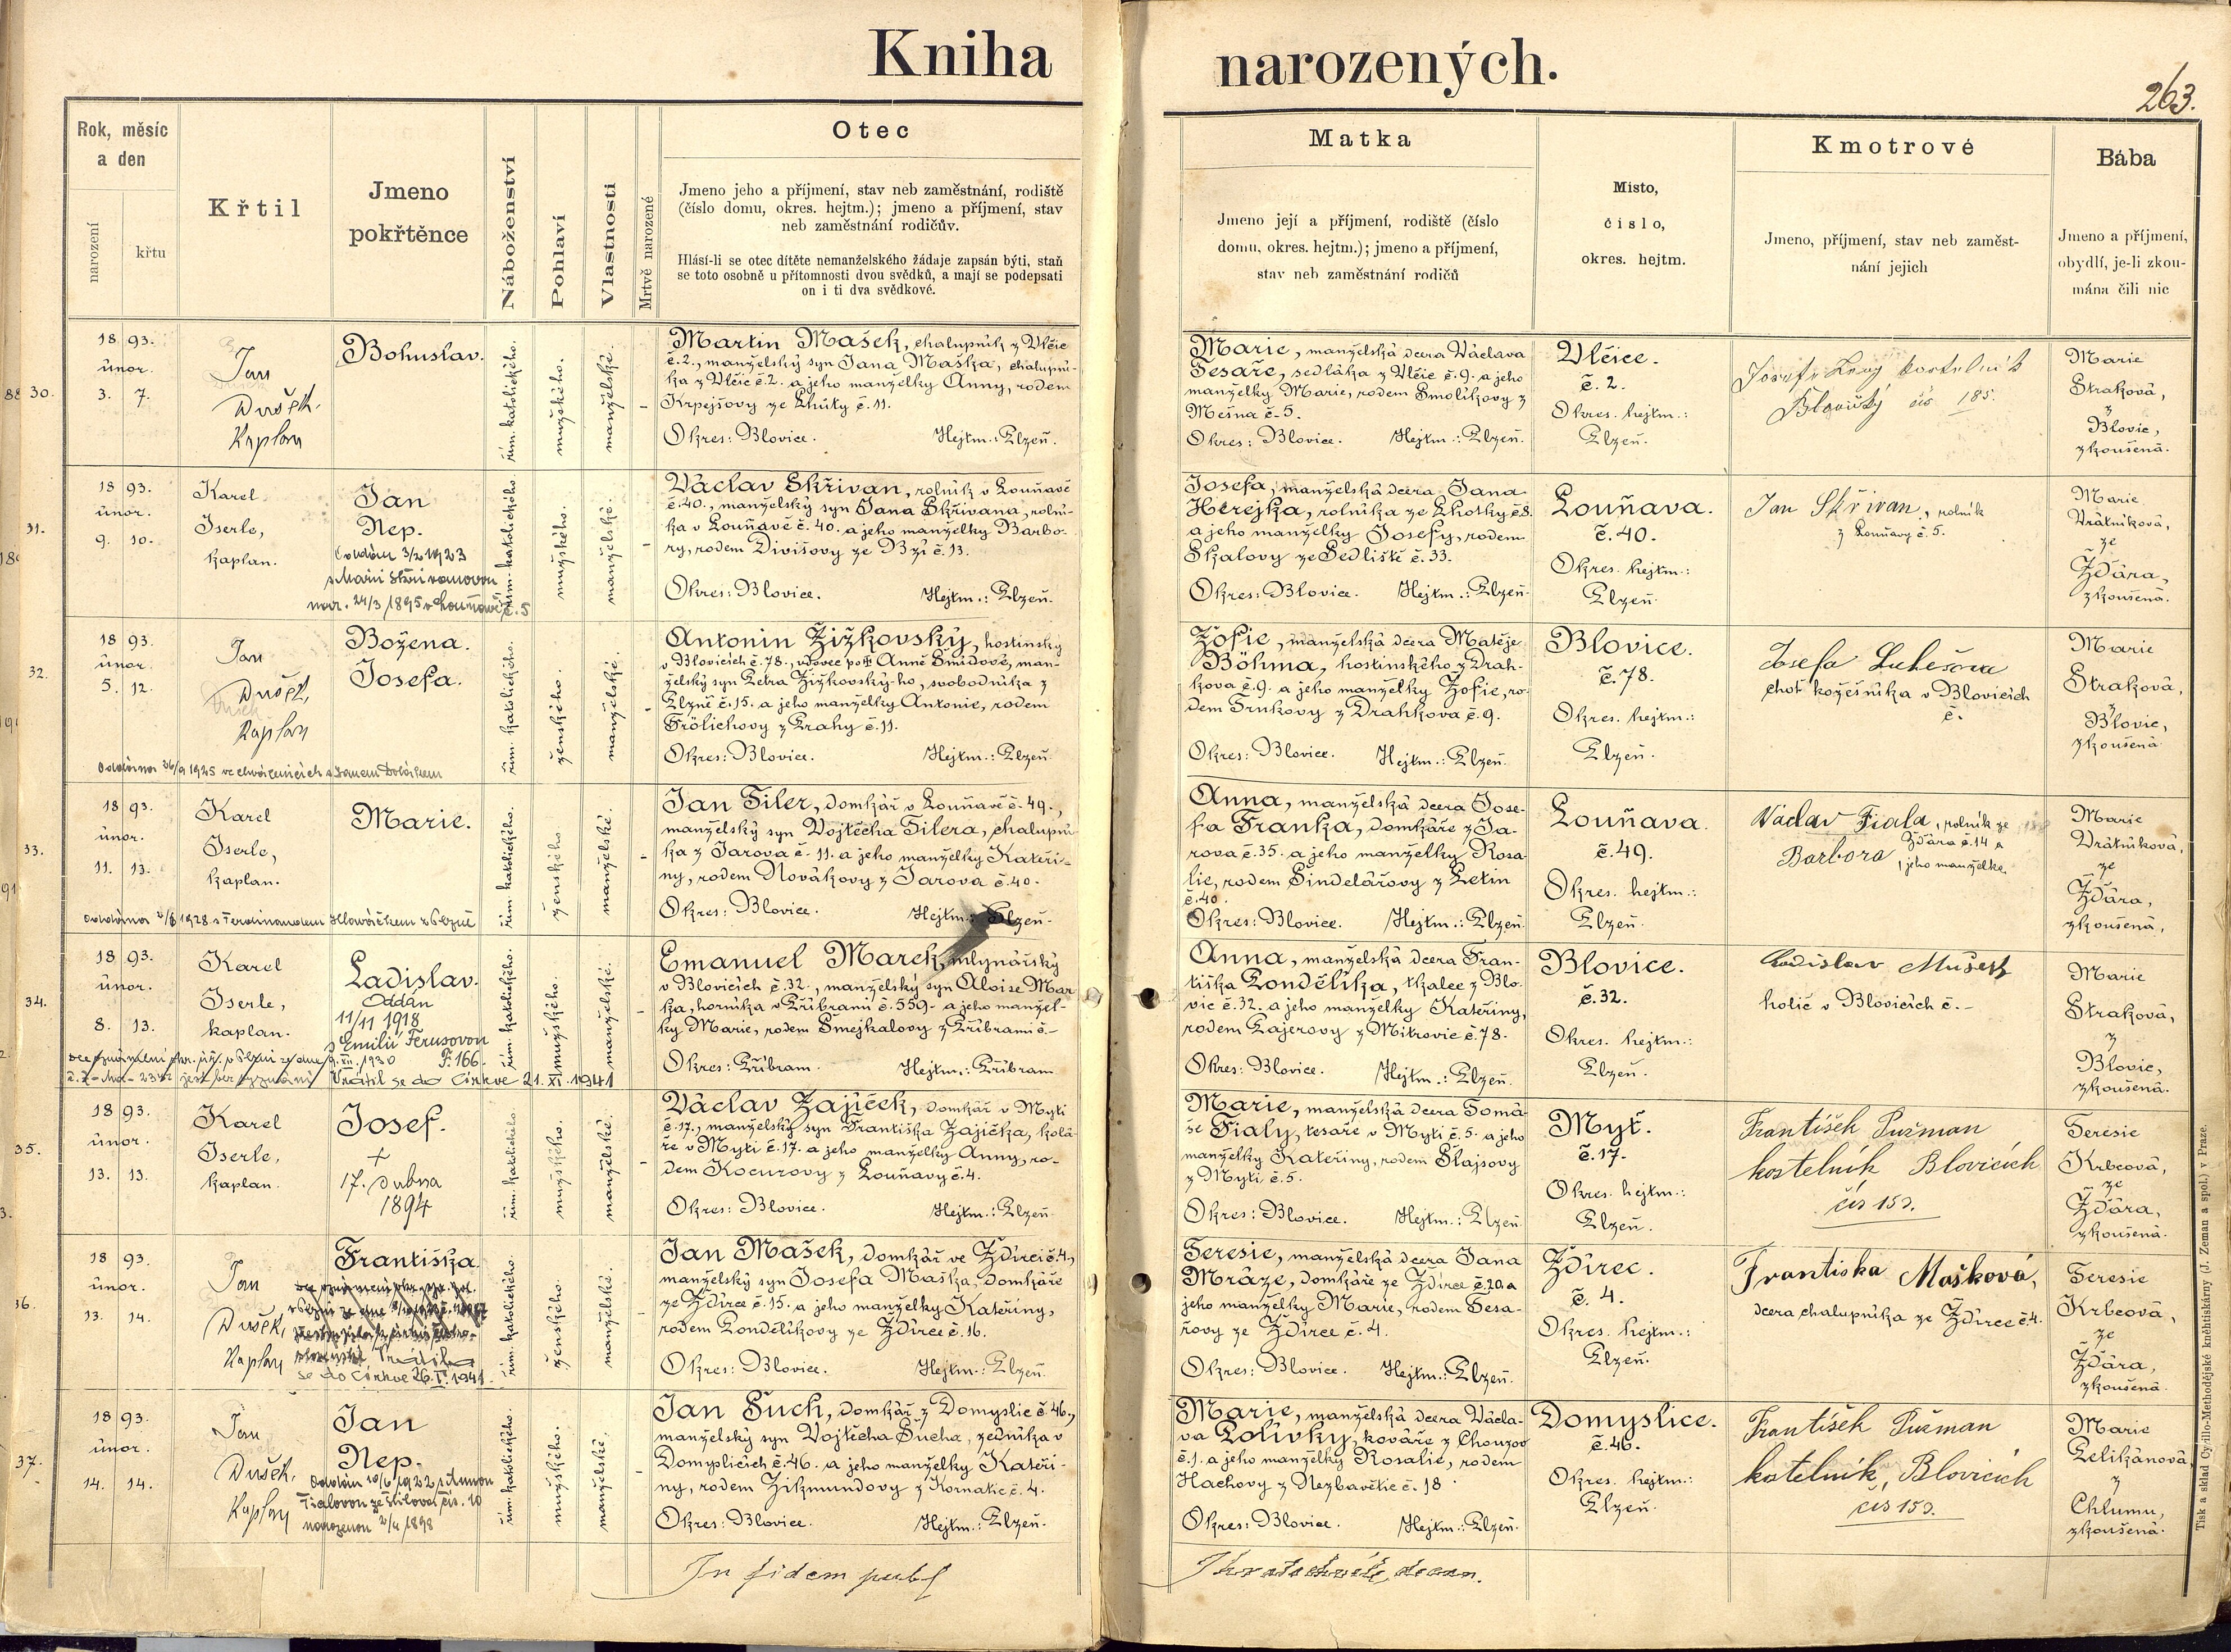 Kniha narozených.
263.
Rok, měsíc
a den
narození
křtu
Křtil
Jmeno
pokřtěnce
Náboženství
Pohlaví
Vlastnosti
Mrtvě narozené
Otec
Jmeno jeho a příjmení, stav neb zaměstnání, rodiště
(číslo domu, okres. hejtm.); jmeno a příjmení, stav
neb zaměstnání rodičův.
Hlásí-li se otec dítěte nemanželského žádaje zapsán býti, staň
se toto osobně u přítomnosti dvou svědků, a mají se podepsati
on i ti dva svědkové.
Matka
Jmeno její a příjmení, rodiště (číslo
domu, okres. hejtm.); jmeno a příjmení,
stav neb zaměstnání rodičů
Místo,
číslo,
okres. hejtm.
Kmotrové
Jmeno, příjmení, stav neb zaměst-
nání jejich
Bába
Jmeno a příjmení,
obydlí, je-li zkou-
mána čili nic
30.
18 93.
únor.
3. 7.
Jan
Dušek.
Kaplan
Bohuslav.
řím. katolického.
mužského.
manželské.
Martin Mašek, chalupník z Vlčic
č. 2., manželský syn Jana Maška, chalupní-
ka z Vlčic č. 2. a jeho manželky Anny, rodem
Krpejšovy ze Lhůty č. 11.
Okres: Blovice. Hejtm.: Plzeň.
Marie, manželská dcera Václava
Tesaře, sedláka z Vlčic č. 9. a jeho
manželky Marie, rodem Smolíkovy z
Mešna č. 5.
Okres: Blovice. Hejtm.: Plzeň.
Vlčice.
č. 2.
Okres. hejtm.:
Plzeň.
Josef kostelník
čís 185.
Marie
Straková,
z
Blovic,
zkoušená.
31.
18 93.
únor.
9. 10.
Karel
Iserle,
kaplan.
Jan
Nep.
Oddán 3/2 1923
s Marií Skřivanovou
nar. 24/3 1895 v Louňavě č. 5
řím. katolického.
mužského.
manželské.
Václav Skřivan, rolník v Louňavě
č. 40., manželský syn Jana Skřivana, rolní-
ka v Louňavě č. 40. a jeho manželky Barbo-
ry, rodem Divišovy ze Bzí č. 13.
Okres: Blovice. Hejtm.: Plzeň.
Josefa, manželská dcera Jana
Herejka, rolníka ze Lhotky č. 8.
a jeho manželky Josefy, rodem
Skalovy ze Sedliště č. 33.
Okres: Blovice. Hejtm.: Plzeň.
Louňava.
č. 40.
Okres. hejtm.:
Plzeň.
Jan Skřivan, rolník
z Louňavy č. 5.
Marie
Vrátníková,
ze
Žďára,
zkoušená.
32.
18 93.
únor.
5. 12.
Jan
Dušek,
Kaplan
Božena.
Josefa.
řím. katolického.
ženského.
manželské.
Antonín Žižkovský, hostinský
v Blovicích č. 78., vdovec po † Anně Šmídové, man-
želský syn Petra Žižkovský-ho, svobodníka z
Plzně č. 15. a jeho manželky Antonie, rodem
Frölichovy z Prahy č. 11.
Okres: Blovice. Hejtm.: Plzeň.
Žofie, manželská dcera Matěje
Böhma, hostinského z Drah-
kova č. 9. a jeho manželky Žofie, ro-
dem Trnkovy z Drahkova č. 9.
Okres: Blovice. Hejtm.: Plzeň.
Blovice.
č. 78.
Okres. hejtm.:
Plzeň.
Josefa Lukešova
choť kožešníka v Blovicích
č.
Marie
Straková,
z
Blovic,
zkoušená.
33.
18 93.
únor.
11. 13.
Karel
Iserle,
kaplan.
Marie.
řím. katolického.
ženského.
manželské.
Jan Tiler, domkář v Louňavě č. 49.,
manželský syn Vojtěcha Tilera, chalupní-
ka z Jarova č. 11. a jeho manželky Kateři-
ny, rodem Novákovy z Jarova č. 40.
Okres: Blovice. Hejtm.: Plzeň.
Anna, manželská dcera Jose-
fa Franka, domkáře z Ja-
rova č. 35. a jeho manželky Rosa-
lie, rodem Šindelářovy z Letin
č. 40.
Okres: Blovice. Hejtm.: Plzeň.
Louňava.
č. 49.
Okres. hejtm.:
Plzeň.
Václav Fiala, rolník ze
Žďára č. 14 a
Barbora, jeho manželka.
Marie
Vrátníková,
ze
Žďára,
zkoušená,
34.
18 93.
únor.
8. 13.
Karel
Iserle,
kaplan.
Ladislav.
Oddán
11/11 1918
s Emilií Ferusovou
F. 166.
Vrátil se do Církve 21. XI. 1941
řím. katolického.
mužského.
manželské.
Emanuel Marek, mlynářský
v Blovicích č. 32., manželský syn Aloise Mar
ka, horníka v Příbrami č. 559. a jeho manžel-
ky Marie, rodem Šmejkalovy z Příbrami č. -
Okres: Příbram. Hejtm.: Příbram
Anna, manželská dcera Fran-
tiška Pondělíka, tkalce z Blo-
vic č. 32. a jeho manželky Kateřiny,
rodem Pajerovy z Mitrovic č. 78.
Okres: Blovice. Hejtm.: Plzeň.
Blovice.
č. 32.
Okres. hejtm.:
Plzeň.
Ladislav Mušek
holič v Blovicích č. -
Marie
Straková,
z
Blovic,
zkoušená.
35.
18 93.
únor.
13. 13.
Karel
Iserle,
kaplan.
Josef.
+
17. dubna
1894
řím. katolického.
mužského.
manželské.
Václav Zajíček, domkář v Mýti
č. 17., manželský syn Františka Zajíčka, kolá-
ře v Mýti č. 17. a jeho manželky Anny, ro-
dem Kocurovy z Louňavy č. 4.
Okres: Blovice. Hejtm.: Plzeň.
Marie, manželská dcera Tomá-
še Fialy, tesaře v Mýti č. 5. a jeho
manželky Kateřiny, rodem Šlajsovy
z Mýti č. 5.
Okres: Blovice. Hejtm.: Plzeň
Mýť.
č. 17.
Okres. hejtm.:
Plzeň.
František Pužman
kostelník Blovicích
čís 153.
Teresie
Krbcová,
ze
Žďára,
zkoušená.
36.
18 93.
únor.
13. 14.
Jan
Dušek,
Kaplan
Františka.
Vrátila
se do Církve 26. I. 1941.
řím. katolického.
ženského.
manželské.
Jan Mašek, domkář ve Ždírci č. 4.,
manželský syn Josefa Maška, domkáře
ze Ždírce č. 15. a jeho manželky Kateřiny,
rodem Pondělíkovy ze Ždírce č. 16.
Okres: Blovice. Hejtm.: Plzeň.
Teresie, manželská dcera Jana
Mráze, domkáře ze Ždírce č. 20. a
jeho manželky Marie, rodem Tesa-
řovy ze Ždírce č. 4.
Okres: Blovice. Hejtm.: Plzeň.
Ždírec.
č. 4.
Okres. hejtm.:
Plzeň.
Františka Mašková,
dcera chalupníka ze Ždírce č. 4.
Teresie
Krbcová,
ze
Žďára,
zkoušená.
37.
18 93.
únor.
14. 14.
Jan
Dušek,
Kaplan
Jan
Nep.
Oddán 10/6 1922 s Annou
narozenou 2/4 1898
řím. katolického.
mužského.
manželské.
Jan Šuch, domkář z Domyslic č. 46.,
manželský syn Vojtěcha Šucha, zedníka v
Domyslicích č. 46. a jeho manželky Kateři-
ny, rodem Zikmundovy z Kornatic č. 4.
Okres: Blovice. Hejtm.: Plzeň.
Marie, manželská dcera Václa-
va Polívky, kováře z Chouzov
č. 1. a jeho manželky Rosalie, rodem
Hachovy z Nezbavětic č. 18
Okres: Blovice. Hejtm.: Plzeň.
Domyslice.
č. 46.
Okres. hejtm.:
Plzeň.
František Pužman
kostelník, Blovicích
čís 153.
Marie
Pelikánová,
z
Chlumu,
zkoušená.
In fidem publ
Tisk a sklad Cyrillo-Methodějské knihtiskárny (J. Zeman a spol.) v Praze.